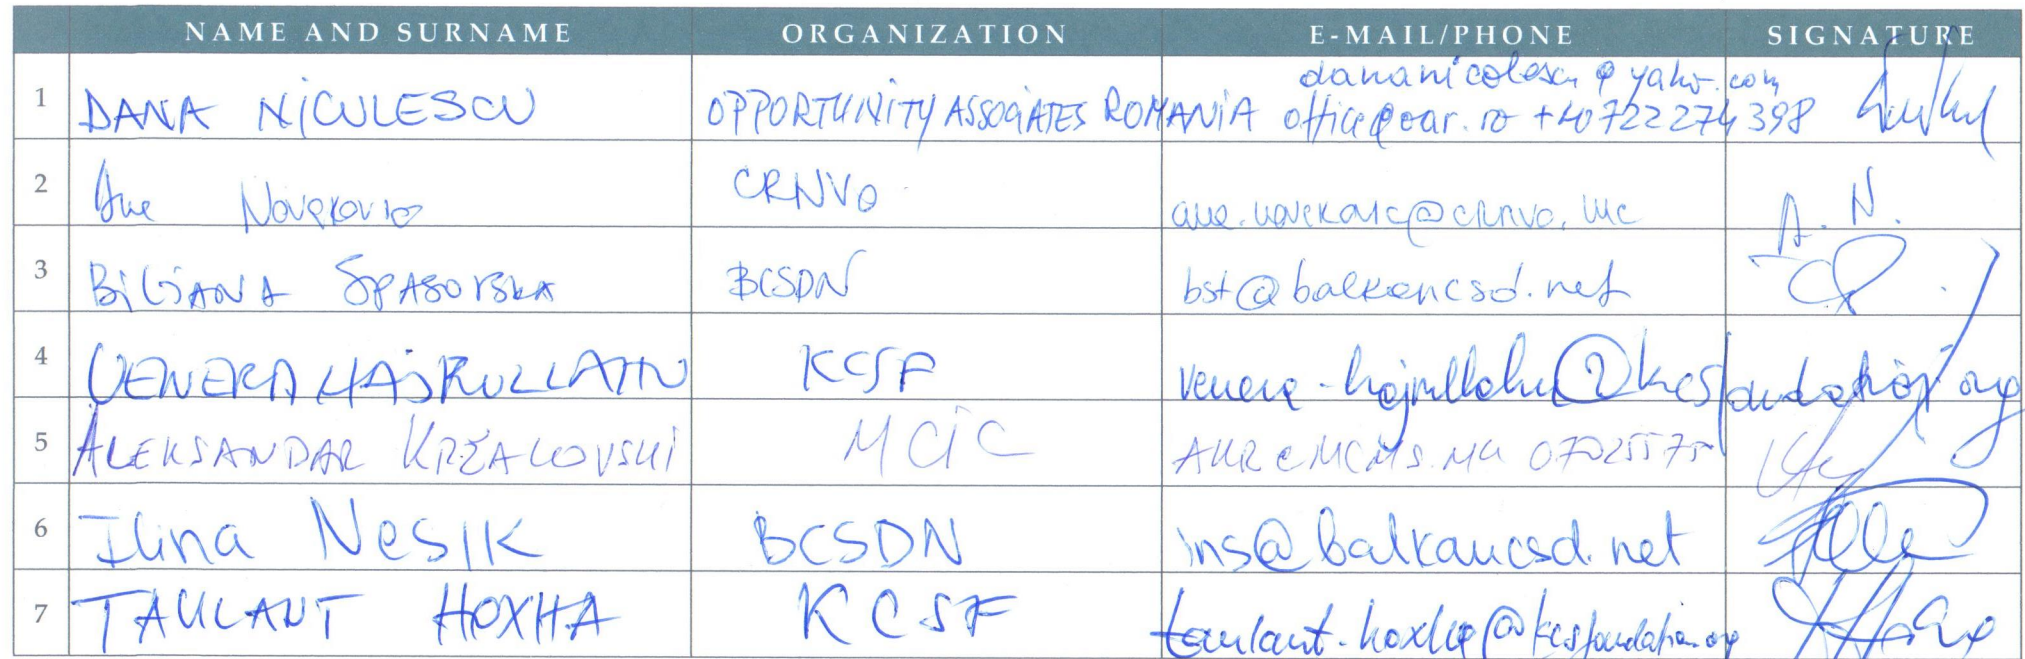 NAME AND SURNAME ORGANIZATION E-MAIL/PHONE SIGNATURE
dananicolescu@yahoo.com
1 DANA NICULESCU OPPORTUNITY ASSOCIATES ROMANIA office@oar.ro +40722274398
2 Ana Novakovic CRNVO ana.novakovic@crnvo.me A. N.
3 BILJANA SPASOVSKA BCSDN bst@balkancsd.net
4 VENERA HAJRULLAHU KCSF venera-hajrullahu@kcsfoundation.org
5 ALEKSANDAR KRŽALOVSKI MCIC
6 Ilina Nesik BCSDN ins@balkancsd.net
7 TAULANT HOXHA KCSF taulant.hoxha@kcsfoundation.org